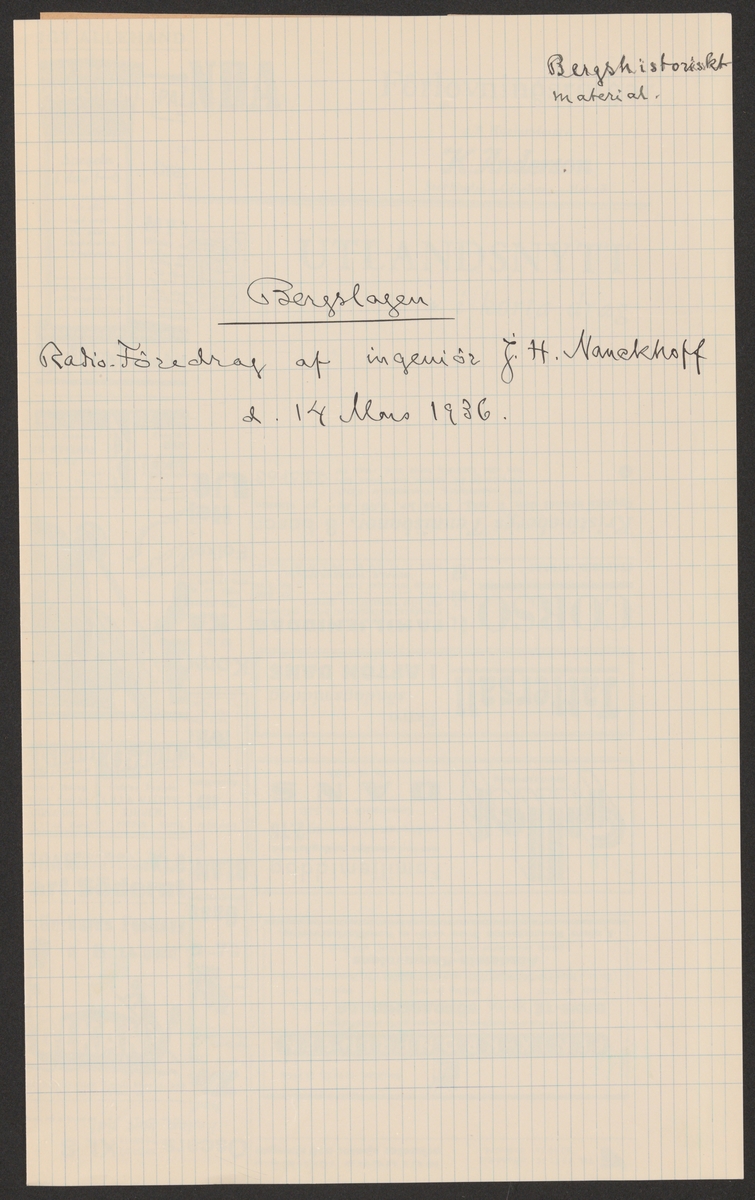 Bergshistoriskt
material.
Bergslagen
Radio-Föredrag af ingeniör J. H. Nauckhoff
d. 14 Mars 1936.